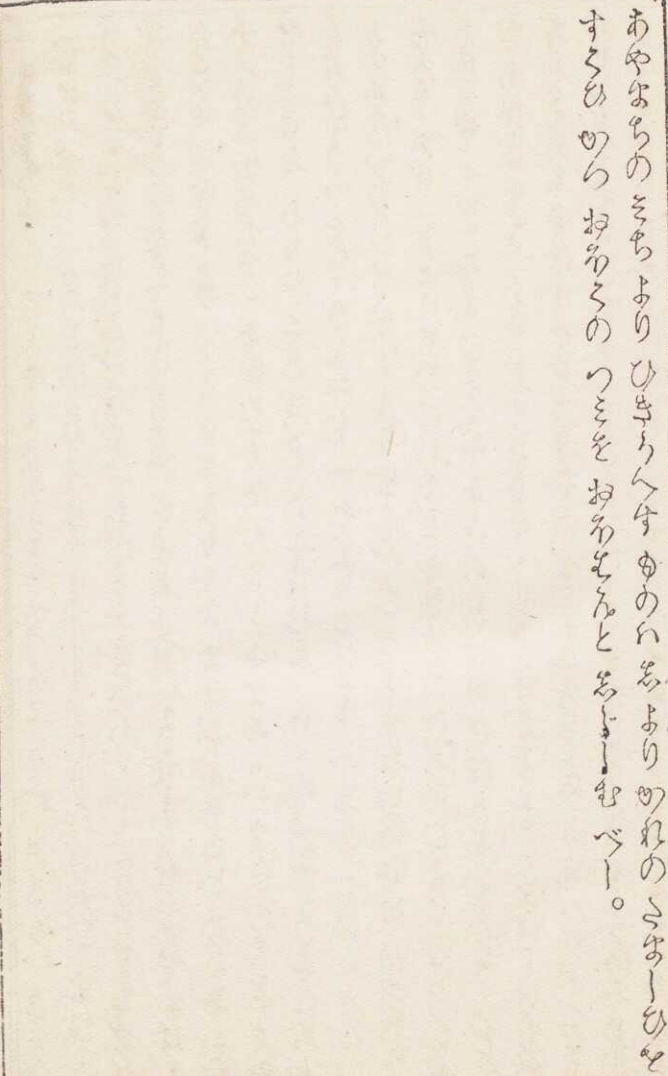 あやまちの みち より ひきかへす ものハ しより かれの たましひを
すくひ かつ おほくの つみを おほはんと しらしむ べし。